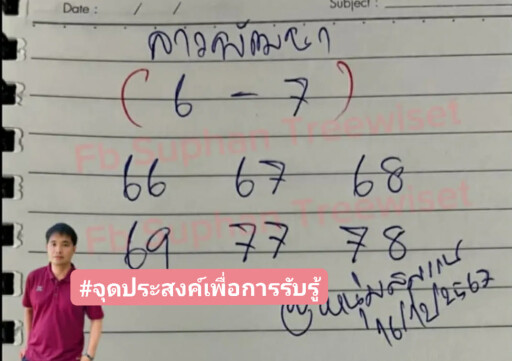 Date : / /
Subject :
ลาวพัฒนา
( 6 - 7 )
Fb Suphan Treewiset
66 67 68
Fb Suphan Treewiset
69 77 78
#จุดประสงค์เพื่อการรับรู้